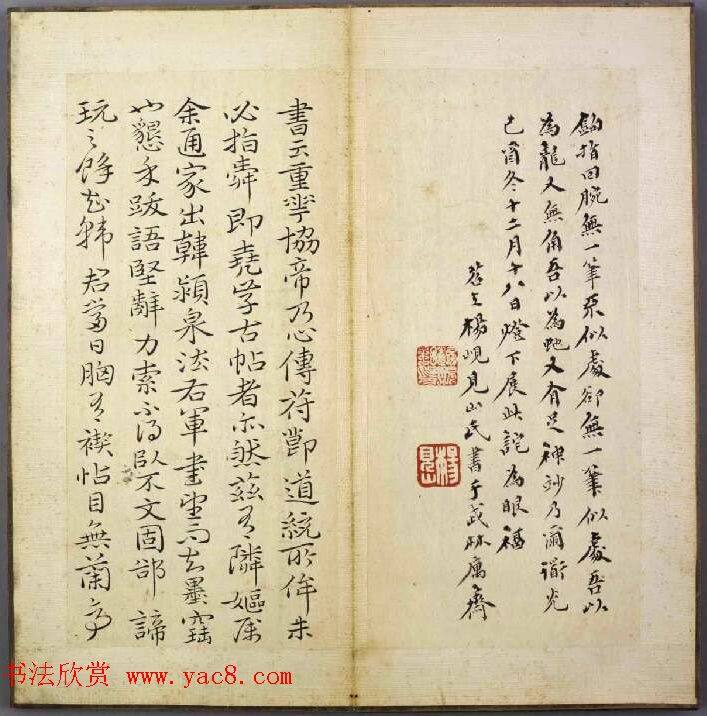 鈎指回腕無一筆 似處卻無一筆似處吾以
為龍又無角吾以為蛇又有足神妙乃爾道光
己酉冬十二月十八日燈下展此詫為眼福
苕上楊峴見山氏書于武林廡齋
書云重華協帝乃心傳符節道統所侔
必指舜即堯學古帖者亦然茲有隣嫗屬
余通家出韓潁泉法右軍書望而知墨
也懇予跋語堅辭力索不得 不文固鄙諦
玩之餘知韓君當日胸有禊帖目無蘭亭
书法欣赏 www.yac8.com